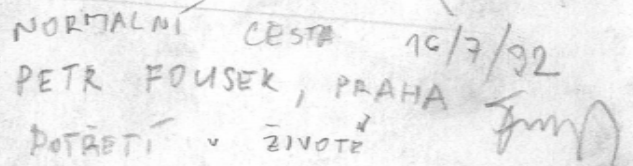 NORMALNÍ CESTA 16/7/92
PETR FOUSEK, PRAHA
POTŘETÍ V ŽIVOTĚ